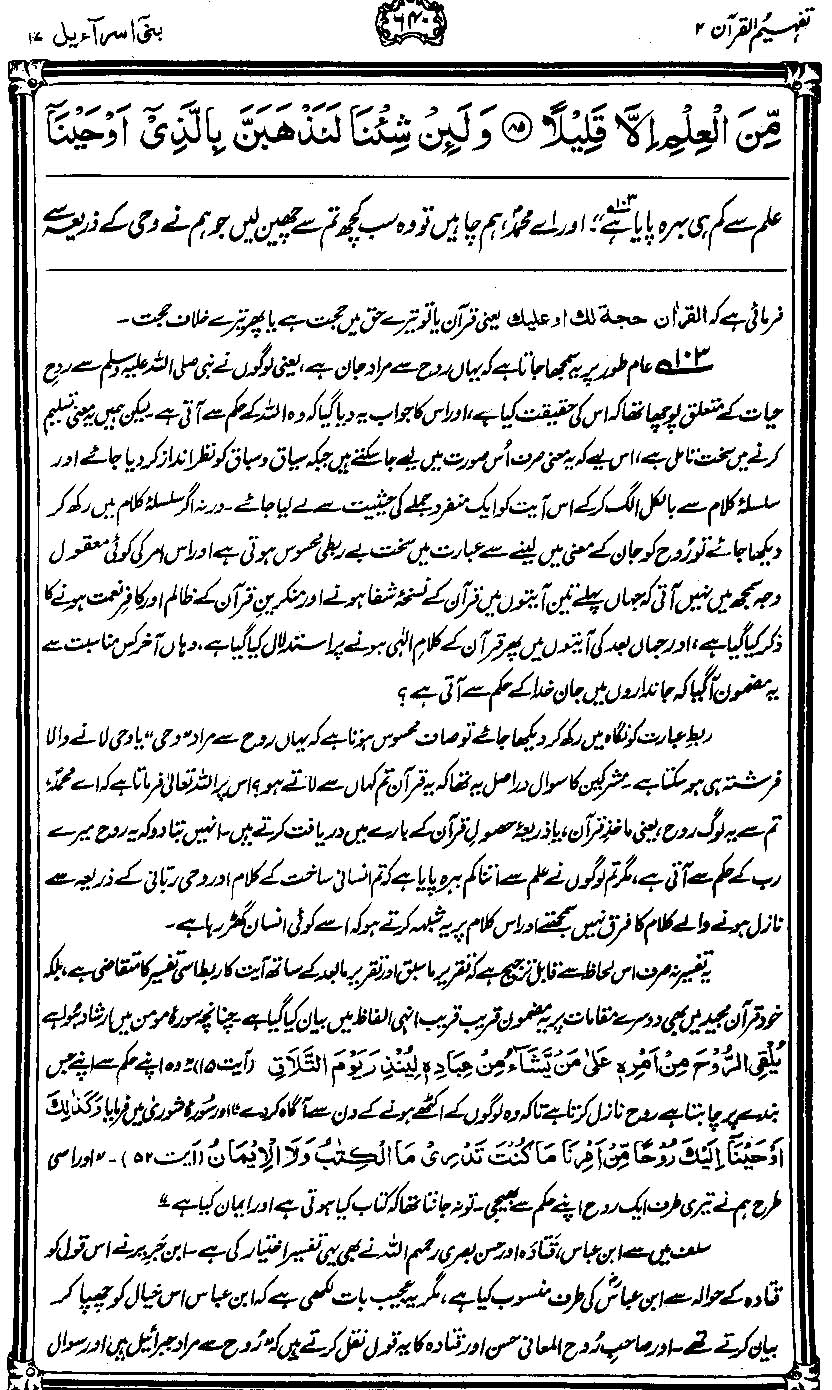 تفہیم القرآن ۲
۶۴۰
بنی اسرآءیل ۱۷
مِّنَ الْعِلْمِ اِلَّا قَلِيْلًا ﴿۸۵﴾ وَلَئِنْ شِئْنَا لَنَذْهَبَنَّ بِالَّذِىْٓ اَوْحَيْنَآ
علم سے کم ہی بہرہ پایا ہے"۔ ۱۰۳ اور اے محمدؐ، ہم چاہیں تو وہ سب کچھ تم سے چھین لیں جو ہم نے وحی کے ذریعہ سے
فرمائی ہے کہ القراٰن حجة لك او عليك یعنی قرآن یا تو تیرے حق میں حجت ہے یا پھر تیرے خلاف حجت۔
۱۰۳ عام طور پر یہ سمجھا جاتا ہے کہ یہاں روح سے مراد جان ہے، یعنی لوگوں نے نبی صلی اللہ علیہ وسلم سے روحِ
حیات کے متعلق پوچھا تھا کہ اس کی حقیقت کیا ہے، اور اس کا جواب یہ دیا گیا کہ وہ اللہ کے حکم سے آتی ہے۔ لیکن ہمیں یہ معنی تسلیم
کرنے میں سخت تامل ہے، اس لیے کہ یہ معنی صرف اُس صورت میں لیے جا سکتے ہیں جبکہ سیاق و سباق کو نظر انداز کر دیا جائے اور
سلسلۂ کلام سے بالکل الگ کر کے اس آیت کو ایک منفرد جملے کی حیثیت سے لے لیا جائے۔ ورنہ اگر سلسلۂ کلام میں رکھ کر
دیکھا جائے تو رُوح کو جان کے معنی میں لینے سے عبارت میں سخت بے ربطی محسوس ہوتی ہے اور اس امر کی کوئی معقول
وجہ سمجھ میں نہیں آتی کہ جہاں پہلے تین آیتوں میں قرآن کے نسخۂ شفا ہونے اور منکرینِ قرآن کے ظالم اور کافرِ نعمت ہونے کا
ذکر کیا گیا ہے، اور جہاں بعد کی آیتوں میں پھر قرآن کے کلامِ الٰہی ہونے پر استدلال کیا گیا ہے، وہاں آخر کس مناسبت سے
یہ مضمون آ گیا کہ جانداروں میں جان خدا کے حکم سے آتی ہے؟
ربطِ عبارت کو نگاہ میں رکھ کر دیکھا جائے تو صاف محسوس ہوتا ہے کہ یہاں روح سے مراد "وحی" یا وحی لانے والا
فرشتہ ہی ہو سکتا ہے۔ مشرکین کا سوال دراصل یہ تھا کہ یہ قرآن تم کہاں سے لاتے ہو؟ اس پر اللہ تعالیٰ فرماتا ہے کہ اے محمدؐ،
تم سے یہ لوگ روح، یعنی ماخذِ قرآن، یا ذریعۂ حصولِ قرآن کے بارے میں دریافت کرتے ہیں۔ انہیں بتا دو کہ یہ روح میرے
رب کے حکم سے آتی ہے، مگر تم لوگوں نے علم سے اتنا کم بہرہ پایا ہے کہ تم انسانی ساخت کے کلام اور وحیِ ربّانی کے ذریعہ سے
نازل ہونے والے کلام کا فرق نہیں سمجھتے اور اس کلام پر یہ شبہ کرتے ہو کہ اسے کوئی انسان گھڑ رہا ہے۔
یہ تفسیر نہ صرف اس لحاظ سے قابلِ ترجیح ہے کہ تقریرِ ماسبق اور تقریرِ مابعد کے ساتھ آیت کا ربط اسی تفسیر کا متقاضی ہے، بلکہ
خود قرآن مجید میں بھی دوسرے مقامات پر یہ مضمون قریب قریب انہی الفاظ میں بیان کیا گیا ہے۔ چنانچہ سورۂ مومن میں ارشاد ہوا ہے
يُلْقِى الرُّوْحَ مِنْ اَمْرِهٖ عَلٰى مَنْ يَّشَآءُ مِنْ عِبَادِهٖ لِيُنْذِرَ يَوْمَ التَّلَاقِ (آیت ۱۵) "وہ اپنے حکم سے اپنے جس
بندے پر چاہتا ہے روح نازل کرتا ہے تاکہ وہ لوگوں کے اکٹھے ہونے کے دن سے آگاہ کر دے"۔ اور سُورۂ شوریٰ میں فرمایا وَكَذٰلِكَ
اَوْحَيْنَآ اِلَيْكَ رُوْحًا مِّنْ اَمْرِنَا مَا كُنْتَ تَدْرِىْ مَا الْكِتٰبُ وَلَا الْاِيْمَانُ (آیت ۵۲)۔ "اور اسی
طرح ہم نے تیری طرف ایک روح اپنے حکم سے بھیجی۔ تو نہ جانتا تھا کہ کتاب کیا ہوتی ہے اور ایمان کیا ہے"۔
سلف میں سے ابن عباس، قَتادَہ اور حسن بصری رحمہم اللہ نے بھی یہی تفسیر اختیار کی ہے۔ ابن جَریر نے اس قول کو
قتادہ کے حوالہ سے ابن عباسؓ کی طرف منسوب کیا ہے، مگر یہ عجیب بات لکھی ہے کہ ابن عباس اس خیال کو چھپا کر
بیان کرتے تھے۔ اور صاحبِ رُوح المعانی حسن اور قتادہ کا یہ قول نقل کرتے ہیں کہ "رُوح سے مراد جبرائیل ہیں اور سوال